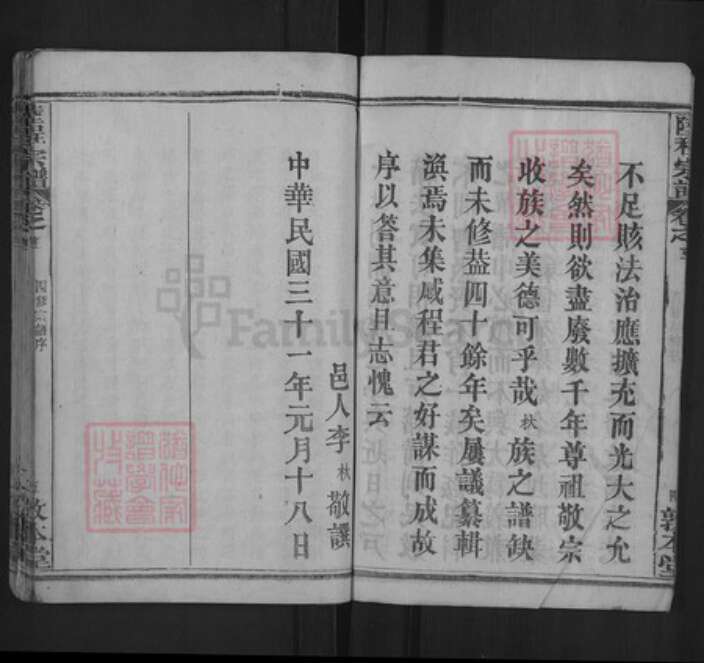 不足賅法治應擴充而光大之允
矣然則欲盡廢數千年尊祖敬宗
收族之美德可乎哉秋族之譜缺
而未修葢四十餘年矣屢議纂輯
渙焉未集感程君之好謀而成故
序以答其意且志愧云
邑人李秋敬譔
中華民國三十一年元月十八日
四修宗譜序
敦本堂
FamilySearch